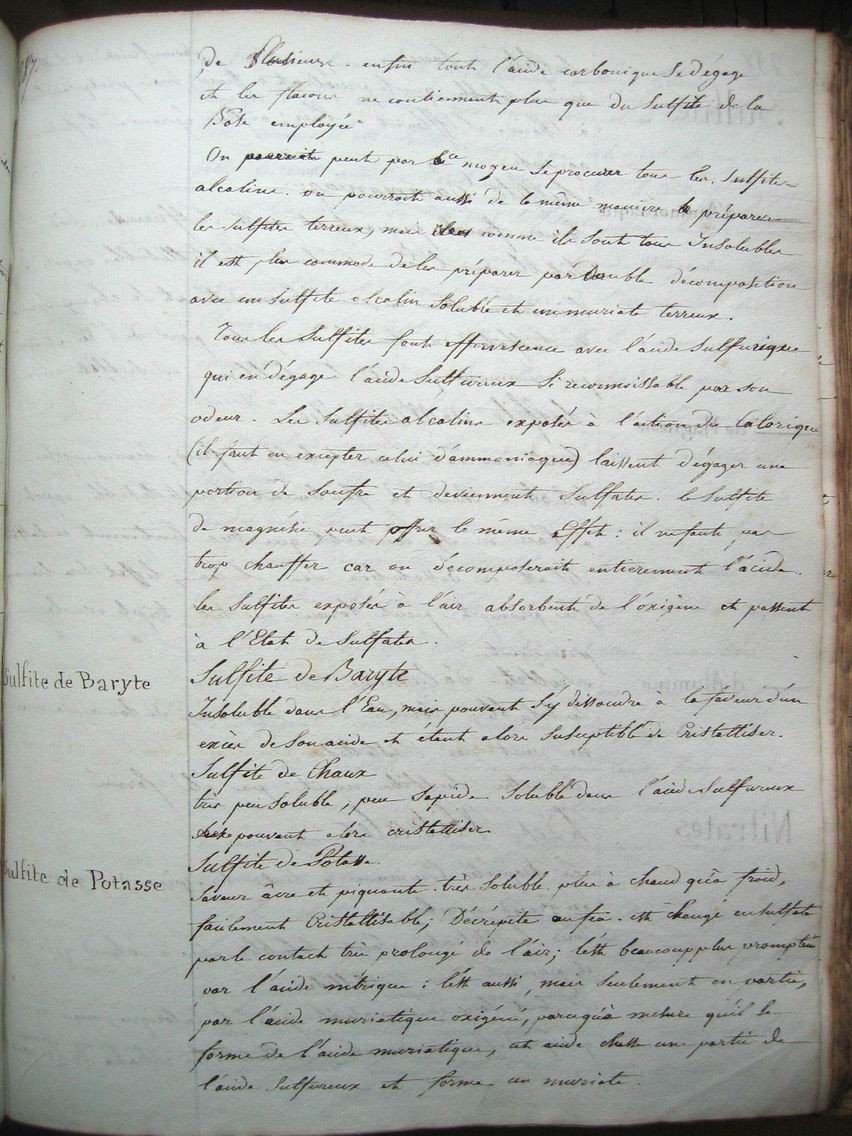 de Plusieurs. enfin tout l'acide carbonique se dégage
et les flacons ne contiennent plus que du Sulfite de la
Base employée
On pourroit peut par ce moyen se procurer tous les Sulfites
alcalins. on pourroit aussi de la même manière préparer
les sulfites terreux, mais comme ils sont tous Insolubles
il est plus commode de les préparer par double décomposition
avec un sulfite alcalin soluble et un muriate terreux.
Tous les Sulfites font effervescence avec l'acide Sulfurique
qui en dégage l'acide Sulfureux si reconnoissable par son
odeur. Les Sulfites alcalins exposés à l'action du Calorique
(il faut en excepter celui d'ammoniaque) laissent dégager une
portion de Soufre et deviennent Sulfates. le Sulfite
de magnésie peut offrir le même Effet: il ne faut pas
trop chauffer car on décomposeroit entierement l'acide.
les Sulfites exposés à l'air absorbent de l'oxigène et passent
à l'Etat de Sulfates.
Sulfite de Baryte
Sulfite de Baryte
Insoluble dans l'Eau, mais pouvant s'y dissoudre à la faveur d'un
excès de son acide et étant alors Susceptible de Cristalliser.
Sulfite de Chaux
très peu Soluble, peu Sapide Soluble dans l'acide Sulfureux
pouvant alors cristalliser
Sulfite de Potasse
Sulfite de Potasse.
Saveur âcre et piquante. très Soluble plus à chaud qu'à froid,
facilement Cristallisable; Décrépite au feu. est changé en sulfate
par le contact très prolongé de l'air; l'est beaucoup plus promptement
par l'acide nitrique: l'est aussi, mais seulement en partie,
par l'acide muriatique oxigéné, parcequ'à mesure qu'il se
forme de l'acide muriatique, cet acide chasse une partie de
l'acide Sulfureux et forme un muriate.